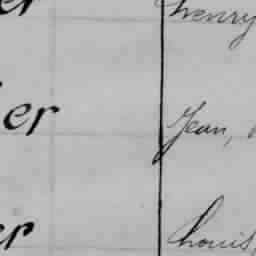 er Henry
er Jean,
er Louis,